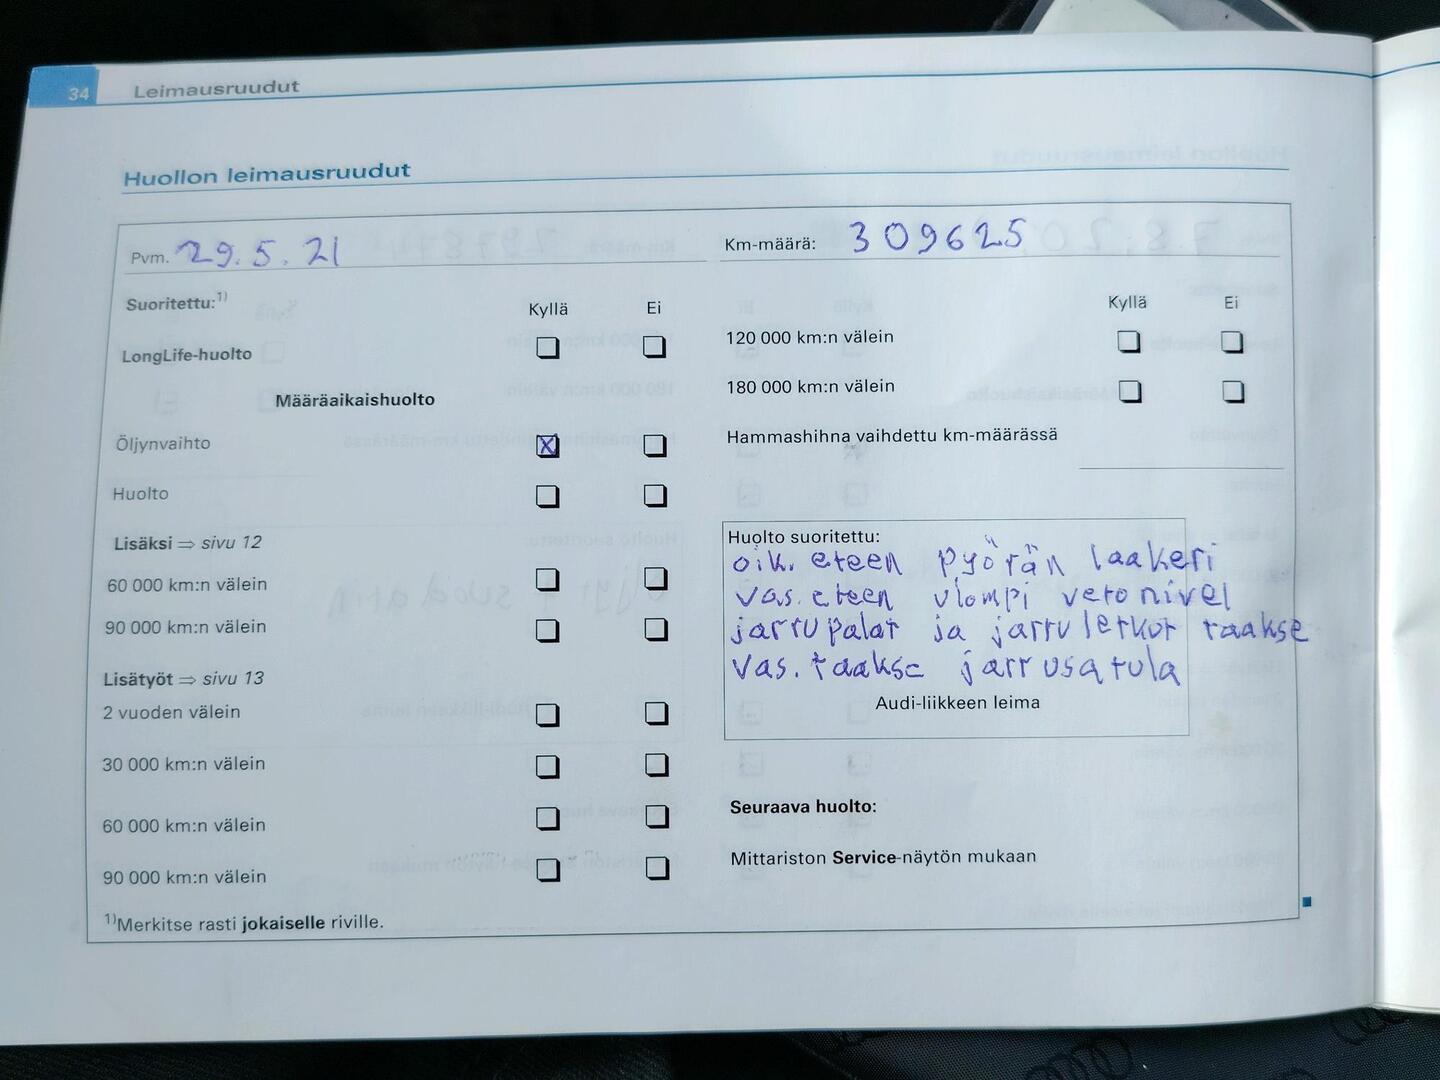 34 Leimausruudut
Huollon leimausruudut
Pvm. 29.5.21
Suoritettu:1) Kyllä Ei
LongLife-huolto
Määräaikaishuolto
Öljynvaihto X
Huolto
Lisäksi ⇒ sivu 12
60 000 km:n välein
90 000 km:n välein
Lisätyöt ⇒ sivu 13
2 vuoden välein
30 000 km:n välein
60 000 km:n välein
90 000 km:n välein
1)Merkitse rasti jokaiselle riville.
Km-määrä: 309625
Kyllä Ei
120 000 km:n välein
180 000 km:n välein
Hammashihna vaihdettu km-määrässä
Huolto suoritettu:
oik. eteen pyörän laakeri
vas. eteen ulompi vetonivel
jarrupalat ja jarruletkut taakse
vas. taakse jarrusatula
Audi-liikkeen leima
Seuraava huolto:
Mittariston Service-näytön mukaan